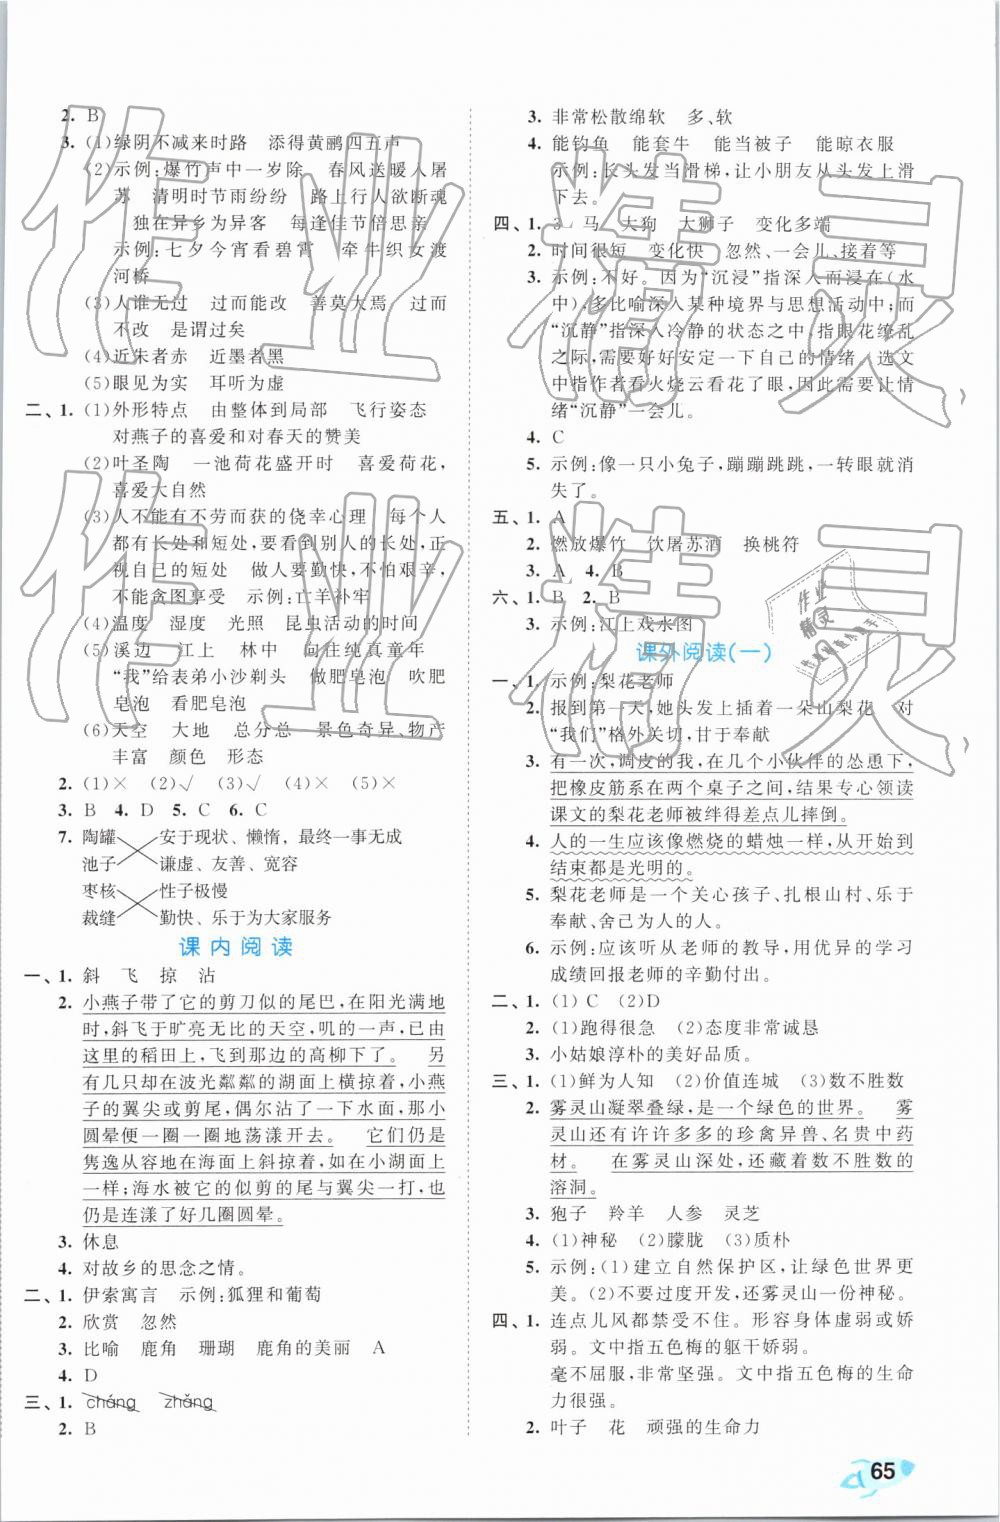 2. B
3. (1)绿阴不减来时路　添得黄鹂四五声
(2)示例:爆竹声中一岁除　春风送暖入屠
苏　清明时节雨纷纷　路上行人欲断魂
独在异乡为异客　每逢佳节倍思亲
示例:七夕今宵看碧霄　牵牛织女渡
河桥
(3)人谁无过　过而能改　善莫大焉　过而
不改　是谓过矣
(4)近朱者赤　近墨者黑
(5)眼见为实　耳听为虚
二、1. (1)外形特点　由整体到局部　飞行姿态
对燕子的喜爱和对春天的赞美
(2)叶圣陶　一池荷花盛开时　喜爱荷花,
喜爱大自然
(3)人不能有不劳而获的侥幸心理　每个人
都有长处和短处,要看到别人的长处,正
视自己的短处　做人要勤快,不怕艰苦,
不能贪图享受　示例:亡羊补牢
(4)温度　湿度　光照　昆虫活动的时间
(5)溪边　江上　林中　向往纯真童年
“我”给表弟小沙剃头　做肥皂泡　吹肥
皂泡　看肥皂泡
(6)天空　大地　总分总　景色奇异、物产
丰富　颜色　形态
2. (1)×　(2)√　(3)√　(4)×　(5)×
3. B 4. D 5. C 6. C
7. 陶罐　安于现状、懒惰,最终一事无成
池子　谦虚、友善、宽容
枣核　性子极慢
裁缝　勤快、乐于为大家服务
课内阅读
一、1. 斜　飞　掠　沾
2. 小燕子带了它的剪刀似的尾巴,在阳光满地
时,斜飞于旷亮无比的天空,叽的一声,已由
这里的稻田上,飞到那边的高柳下了。　另
有几只却在波光粼粼的湖面上横掠着,小燕
子的翼尖或剪尾,偶尔沾了一下水面,那小
圆晕便一圈一圈地荡漾开去。　它们仍是
隽逸从容地在海面上斜掠着,如在小湖面上
一样;海水被它的似剪的尾与翼尖一打,也
仍是连漾了好几圈圆晕。
3. 休息
4. 对故乡的思念之情。
二、1. 伊索寓言　示例:狐狸和葡萄
2. 欣赏　忽然
3. 比喻　鹿角　珊瑚　鹿角的美丽　A
4. D
三、1. cháng　zhǎng
2. B
3. 非常松散绵软　多、软
4. 能钓鱼　能套牛　能当被子　能晾衣服
示例:长头发当滑梯,让小朋友从头发上滑
下去。
四、1. 3　马　大狗　大狮子　变化多端
2. 时间很短　变化快　忽然、一会儿、接着等
3. 示例:不好。因为“沉浸”指深入而浸在(水
中),多比喻深入某种境界与思想活动中;而
“沉静”指深入冷静的状态之中,指眼花缭乱
之际,需要好好安定一下自己的情绪。选文
中指作者看火烧云看花了眼,因此需要让情
绪“沉静”一会儿。
4. C
5. 示例:像一只小兔子,蹦蹦跳跳,一转眼就消
失了。
五、1. A
2. 燃放爆竹　饮屠苏酒　换桃符
3. A 4. B
六、1. B 2. B
3. 示例:江上戏水图
课外阅读(一)
一、1. 示例:梨花老师
2. 报到第一天,她头发上插着一朵山梨花　对
“我们”格外关切,甘于奉献
3. 有一次,调皮的我,在几个小伙伴的怂恿下,
把橡皮筋系在两个桌子之间,结果专心领读
课文的梨花老师被绊得差点儿摔倒。
4. 人的一生应该像燃烧的蜡烛一样,从开始到
结束都是光明的。
5. 梨花老师是一个关心孩子、扎根山村、乐于
奉献、舍己为人的人。
6. 示例:应该听从老师的教导,用优异的学习
成绩回报老师的辛勤付出。
二、1. (1) C　(2)D
2. (1)跑得很急　(2)态度非常诚恳
3. 小姑娘淳朴的美好品质。
三、1. (1)鲜为人知　(2)价值连城　(3)不胜数
2. 雾灵山凝翠叠绿,是一个绿色的世界。　雾
灵山还有许许多多的珍禽异兽、名贵中药
材。　在雾灵山深处,还藏着数不胜数的
溶洞。
3. 狍子　羚羊　人参　灵芝
4. (1)神秘　(2)朦胧　(3)质朴
5. 示例:(1)建立自然保护区,让绿色世界更
美。(2)不要过度开发,还雾灵山一份神秘。
四、1. 连点儿风都禁受不住。形容身体虚弱或娇
弱。　文中指五色梅的躯干娇弱。
毫不屈服,非常坚强。文中指五色梅的生命
力很强。
2. 叶子　花　顽强的生命力
65
作业精灵
作业精灵
作业
精灵